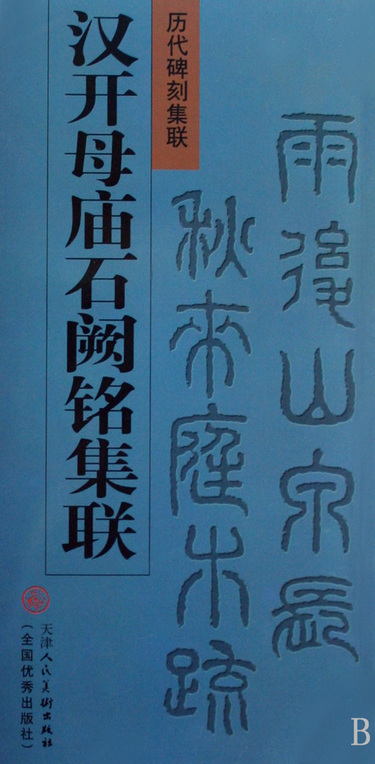 雨後山泉長
秋來庭木疏
历代碑刻集联
汉开母庙石阙铭集联
天津人民美術出版社
(全国优秀出版社)
B